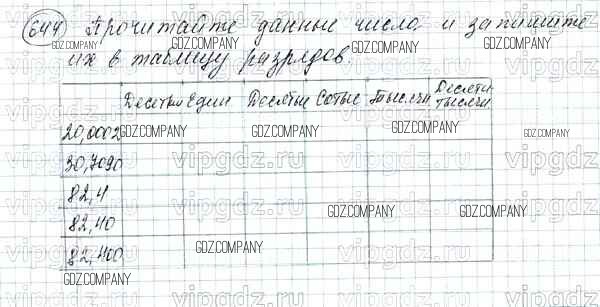 644 Прочитайте данные числа и запишите
их в таблицу разрядов.
Десятки Един Десятые Сотые Тысячи Десяти тысячи
20,0002
30,7090
82,4
82,40
82,400
GDZ.COMPANY
vipgdz.ru